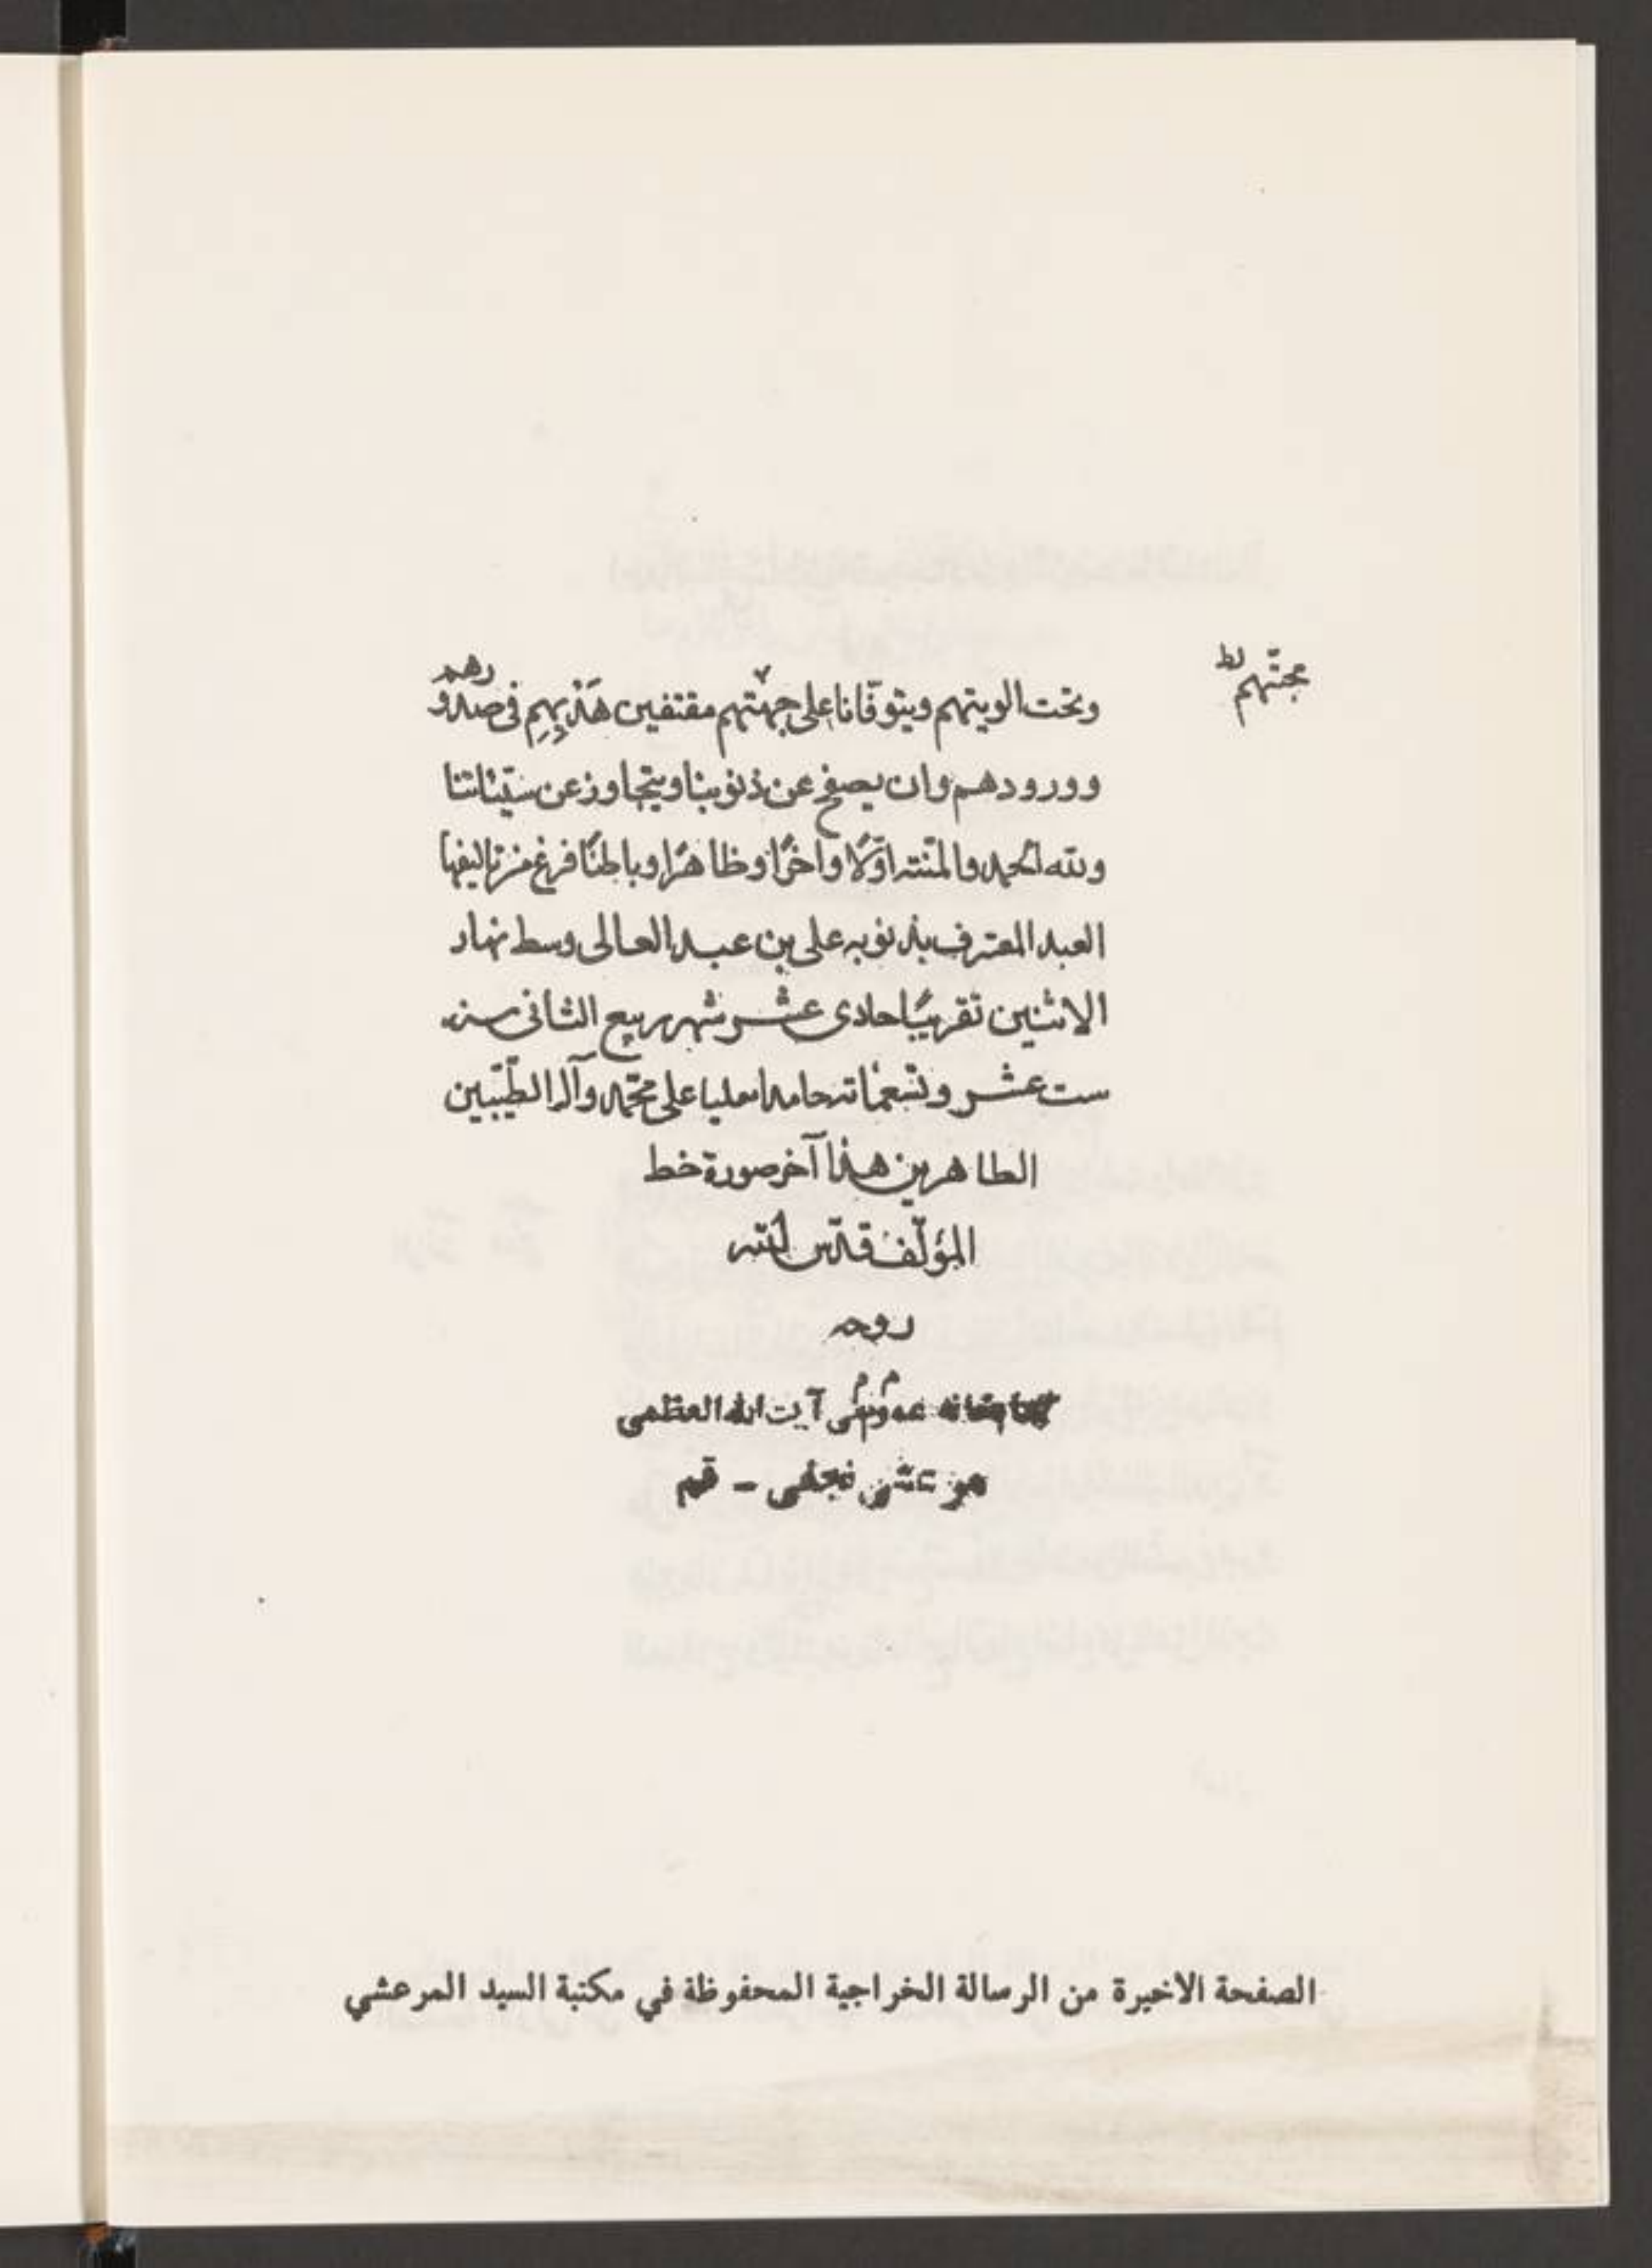 محبتهم
وتحت الويتهم ويتوفّانا على جهتهم مقتفين هَدْيِهِم فى صدورهم
وورودهم وان يصفح عن ذنوبنا ويتجاوز عن سيّئاتنا
ولله الحمد والمنّة اوّلًا وآخرًا وظاهرًا وباطنًا فرغ من تاليفها
العبد المعترف بذنوبه على بن عبد العالى وسط نهار
الاثنين تقريبًا حادى عشر شهر ربيع الثانى سنه
ست عشر وتسعمائة حامدا مصليا على محمّد وآله الطيّبين
الطاهرين هذا آخر صورة خط
المؤلّف قدّس الله
روحه
كتابخانه عمومى آيت الله العظمى
مرعشى نجفى - قم
الصفحة الاخيرة من الرسالة الخراجية المحفوظة في مكتبة السيد المرعشي